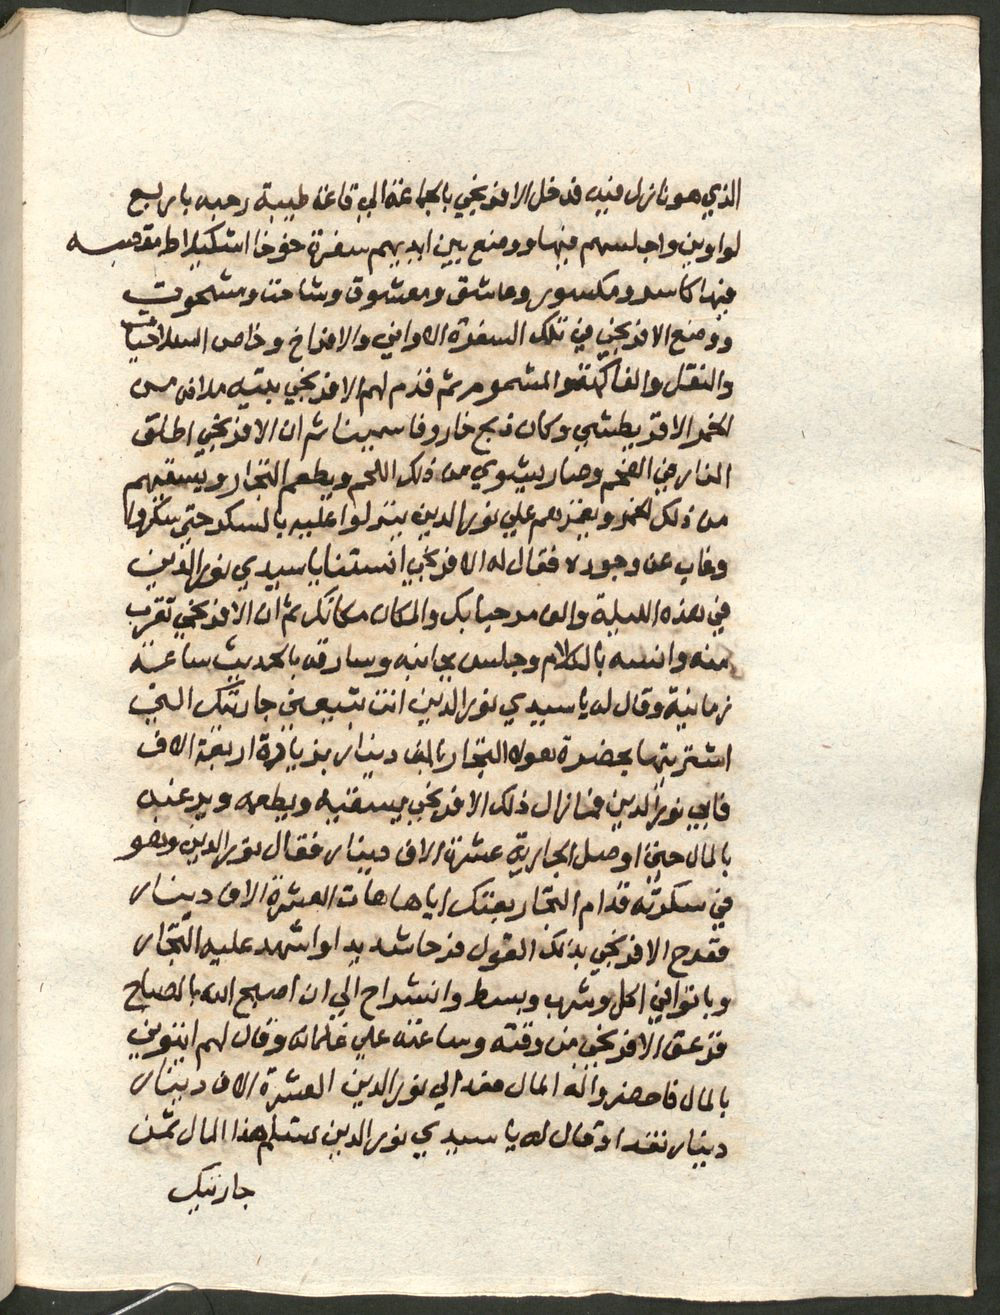 الذي هو نازل فيه فدخل الافرنجي بالجماعة الي قاعة طيبة رحبه باربع
لواوين واجلسهم فيها ووضع بين ايديهم سفرة
فيها كاسر ومكسور وعاشق ومعشوق وشاحت ومشحوت
ووضع الافرنجي في تلك السفرة الاواني والاقداح وخاص السلاحيات
والنقل والفاكهة والمشموم ثم قدم لهم الافرنجي بتيه ملانه من
الخمر الاقريطشي وكان ذبح خاروفا سمينا ثم ان الافرنجي اطلق
النار في الفحم وصار يشوي من ذلك اللحم ويطعم التجار ويسقيهم
من ذلك الخمر ويغمزهم علي نور الدين ينزلوا عليه بالسكر حتي سكروا
وغاب عن وجوده فقال له الافرنجي انستنا يا سيدي نور الدين
في هذه الليلة والف مرحبا بك والمكان مكانك ثم ان الافرنجي تقرب
منه وانسه بالكلام وجلس بجانبه وسارقه بالحديث ساعة
زمانية وقال له يا سيدي نور الدين انت تبيعني جارتك التي
اشتريتها بحضرة هولا التجار بالف دينار بزيادة اربعة الاف
فابي نور الدين فما زال ذلك الافرنجي يسقيه ويطعمه ويرغبه
بالمال حتي اوصل الجارية عشرة الاف دينار فقال نور الدين وهو
في سكرته قدام التجار بعتك اياها هات العشرة الاف دينار
ففرح الافرنجي بذلك القول فرحا شديدا واشهد عليه التجار
وباتوا في اكل وشرب وبسط وانشراح الي ان اصبح الله بالصباح
فزعق الافرنجي من وقته وساعته علي غلمانه وقال لهم ايتوني
بالمال فاحضروا له المال فعد الي نور الدين العشرة الاف دينار
دينار نقدا وقال له يا سيدي نور الدين تسلم هذا المال ثمن
جارتيك